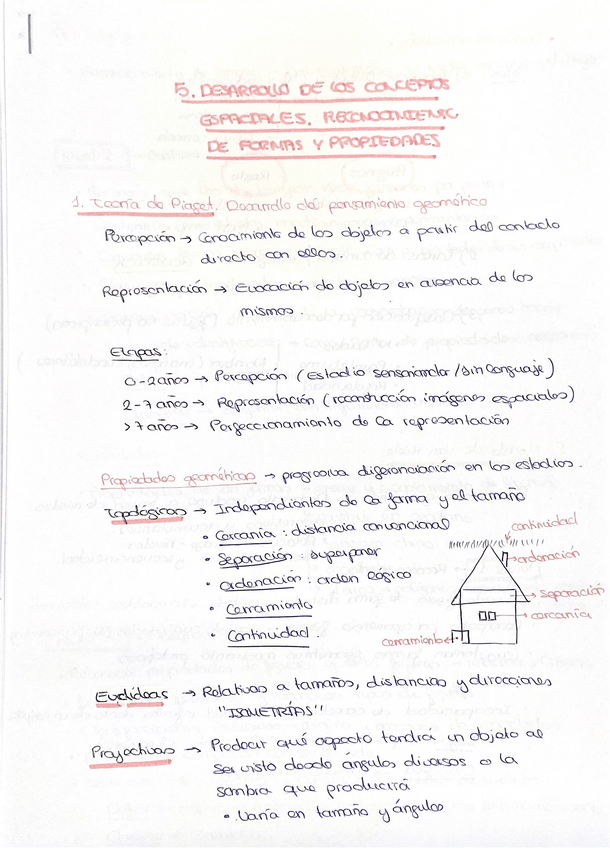 5. DESARROLLO DE LOS CONCEPTOS
ESPACIALES. RECONOCIMIENTO
DE FORMAS Y PROPIEDADES
1. Teoría de Piaget. Desarrollo del pensamiento geométrico
Percepción → Conocimiento de los objetos a partir del contacto
directo con ellos.
Representación → Evocación de objetos en ausencia de los
mismos.
Etapas:
0-2 años → Percepción (Estadio sensoriomotor / sin lenguaje)
2-7 años → Representación (reconstrucción imágenes espaciales)
>7 años → Perfeccionamiento de la representación
Propiedades geométricas → progresiva diferenciación en los estadios.
Topológicas → Independientes de la forma y el tamaño
• Cercanía : distancia convencional
• Separación : superponer
• Ordenación : orden lógico
• Cerramiento
• Continuidad.
continuidad
ordenación
separación
cercanía
cerramiento
Euclídeas → Relativas a tamaños, distancias y direcciones
"ISOMETRÍAS"
Proyectivas → Predecir qué aspecto tendrá un objeto al
ser visto desde ángulos diversos o la
sombra que producirá
• Varía en tamaño y ángulos